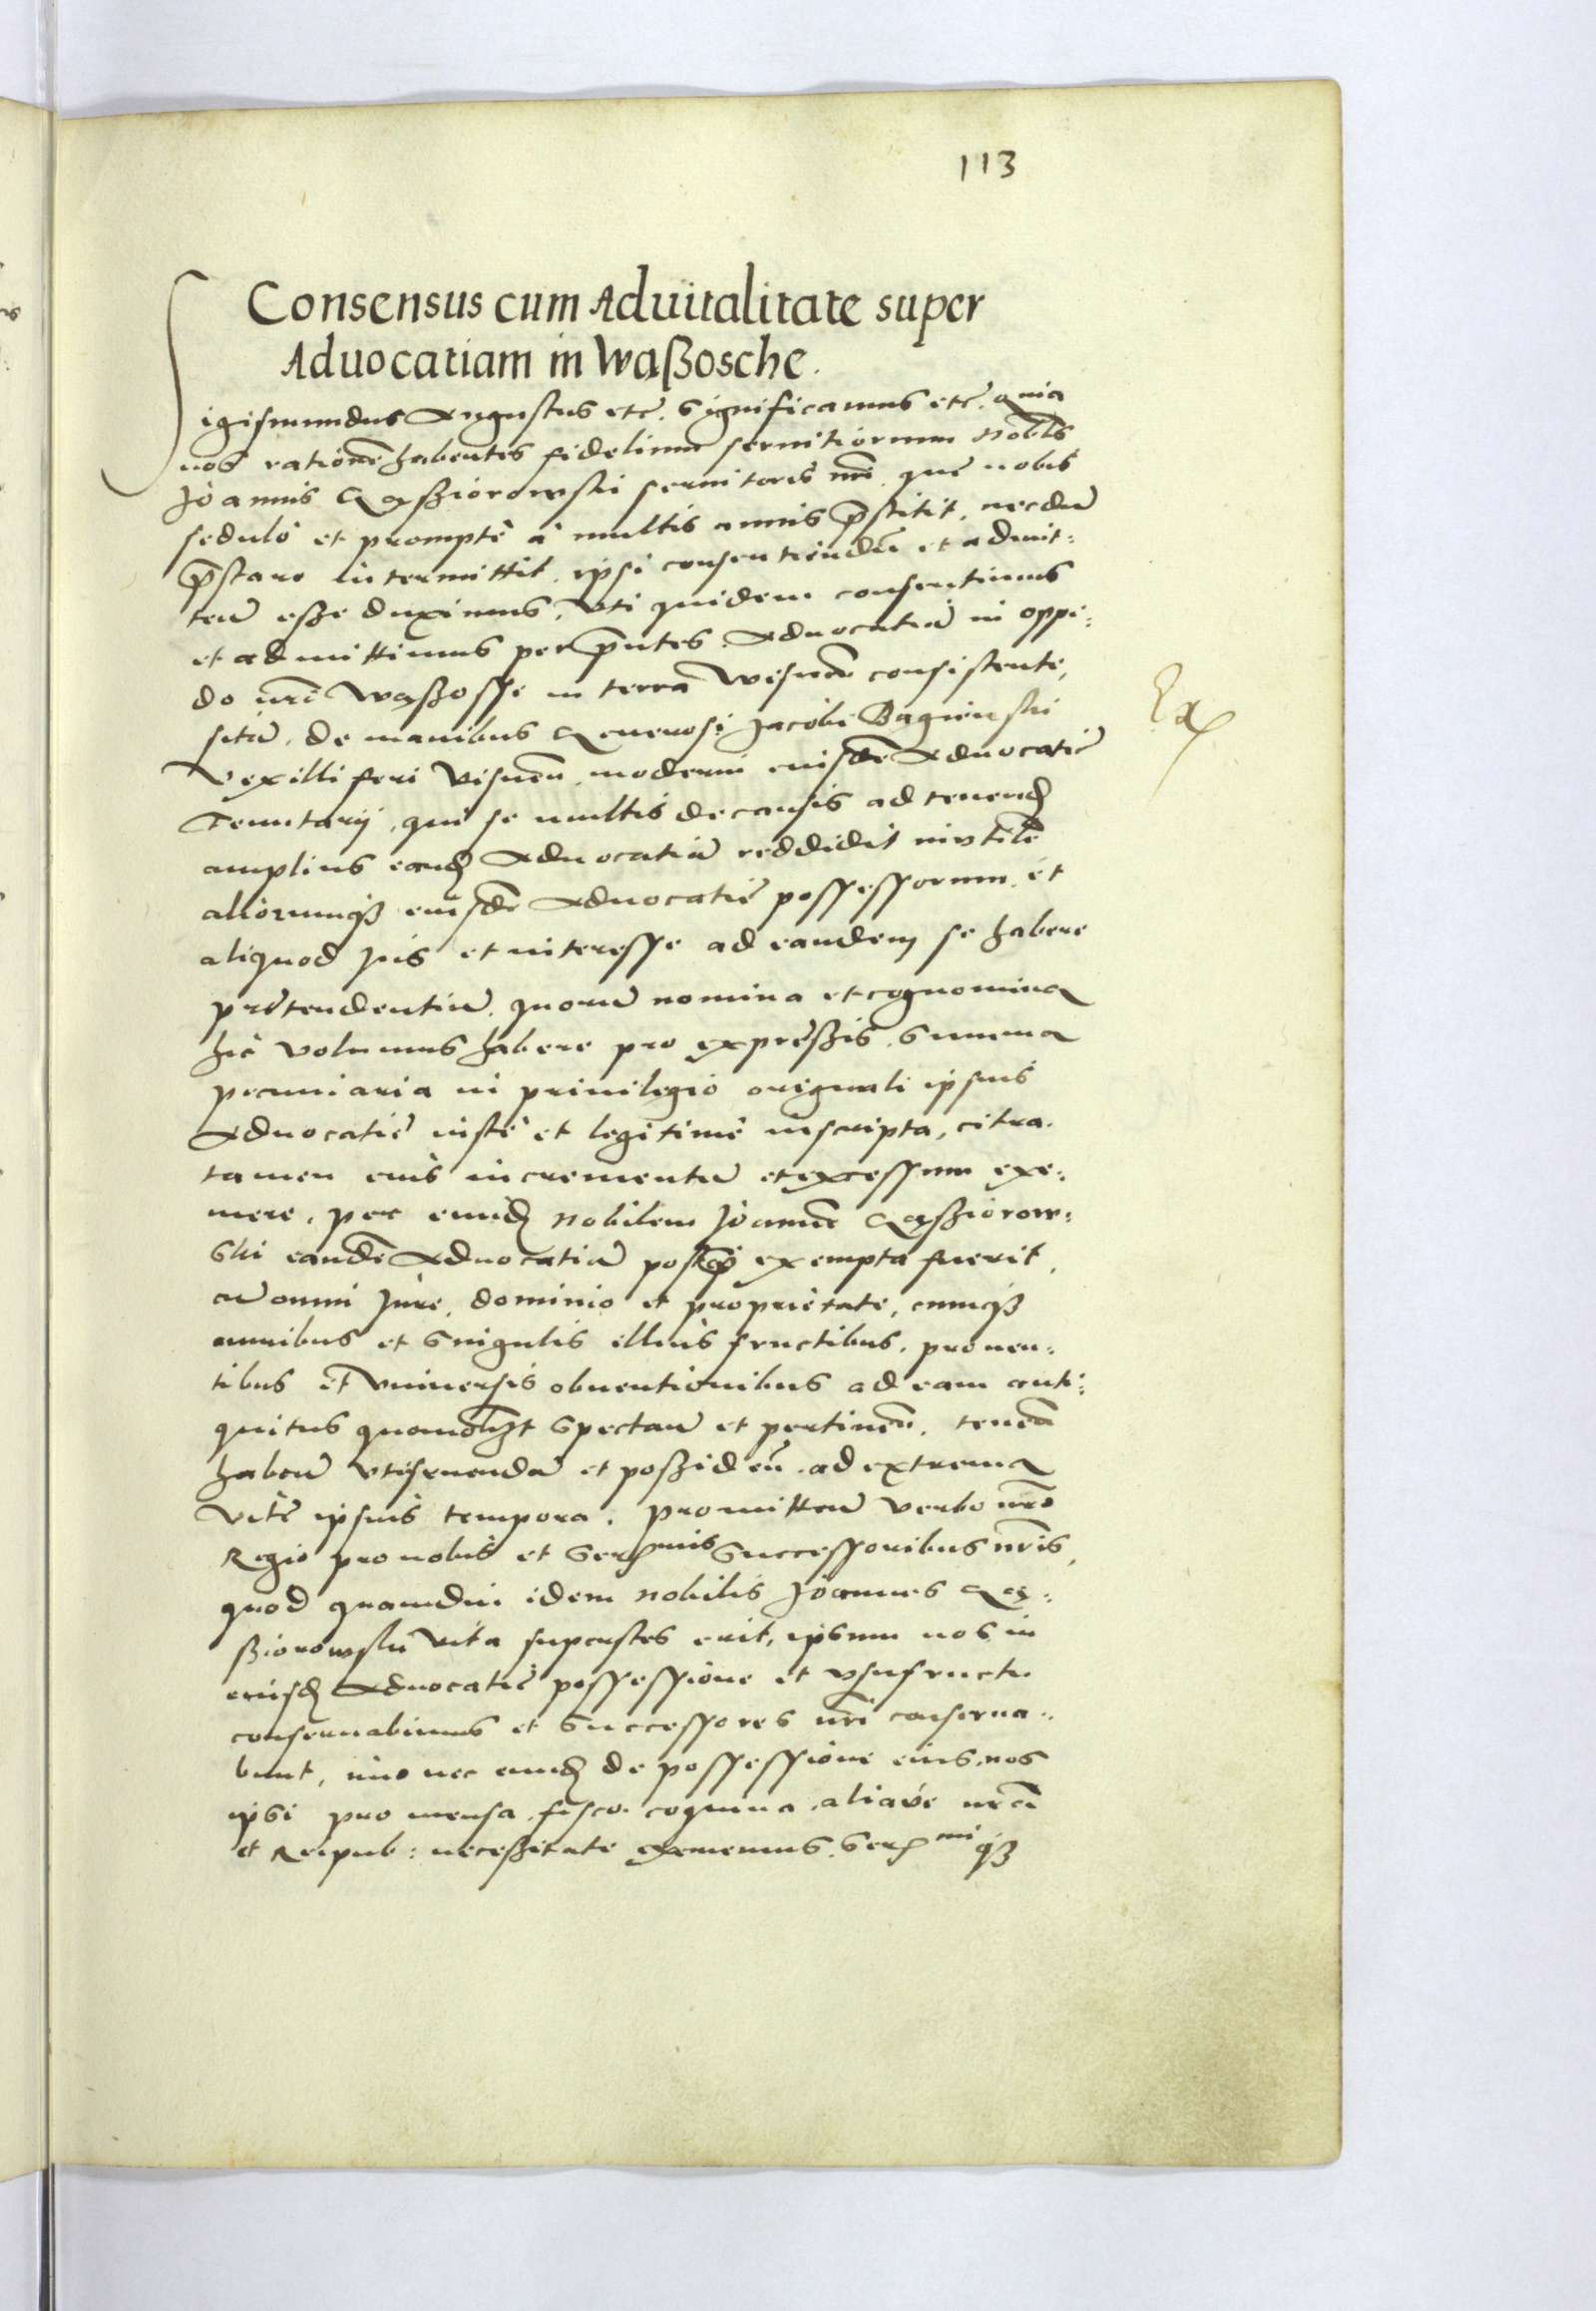 113
Consensus cum Aduitalitate super
Aduocatiam in Waßosche.
Sigismundus Augustus etc. Significamus etc. Quia
nos rationē habentes fidelium seruitiorum Nobĺis
Joannis Gąßiorowski seruitoris nrī. que nobis
sedulò et promptè à multis annis p̄stitit, necdū
p̄stare intermittit, ipsi consentiendū et admit:
ten̄ eße duximus, Vti quidem consentimus
et admittimus per p̄ntes. Aduocatiā in oppi:
do nrō Wąßosse in terra Wisnēn consistente,
sitā, de manibus Generosi Jacobi Bagieński
Vexilliferi Visnēn, moderni eiusdē Aduocatiē
Tenutarij, qui se multis de causis ad tenend̄
amplius eand̄ Aduocatiā reddidit inutilē
aliorumqȝ eiusdē Aduocatiē possessorum, et
aliquod jus et interesse ad eandem se habere
prętendentiū, quorū nomina et cognomina
hìc volumus habere pro expreßis, Summa
pecuniaria in priuilegio originali ipsius
Aduocatiē iustè et legitimè inscripta, citra
tamen eius incrementū et excessum exe:
mere, per eund̄ Nobilem Joannē Gąßiorow:
ski eandē Aduocatiā postq̄ exempta fuerit,
cū omni Jure, dominio et proprietate, cumqȝ
omnibus et Singulis illius fructibus, prouen:
tibus et Vniuersis obuentionibus ad eam anti:
quitus quomodolȝt Spectan̄ et pertinēn, tenēn
haben̄ vtifruendā et poßiden̄, ad extrema
vitē ipsius tempora. Promitten̄ verbo nrō
Regio pro nobis et Serᵐⁱˢ Successoribus nrīs,
quod quamdiu idem Nobilis Joannes Gą:
ßiorowski vita superstes erit, ipsum nos in
eiusd̄ Aduocatiē possessione et vsufructu
conseruabimus et Successores nrī conserua:
bunt, imo nec eund̄ de possessione eius, nos
ipsi pro mensa, fisco, coquina, aliavè nrā
et Reipub: neceßitate eximemus, Serᵐⁱqȝ
Ex